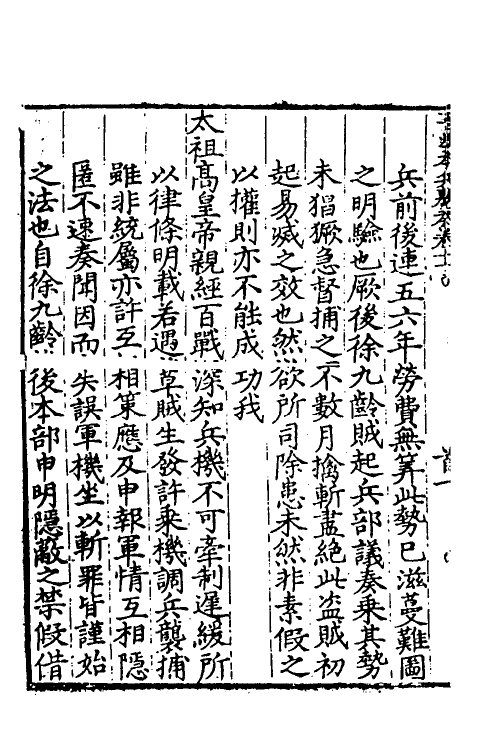 兵前後連五六年勞費無筭此勢已滋蔓難圖
之明驗也厥後徐九齡賊起兵部議奏乗其勢
未猖獗急督捕之不數月擒斬盡絕此盗賊初
起易滅之效也然欲所司除患未然非素假之
以權則亦不能成功我
太祖髙皇帝親經百戰深知兵機不可牽制遲緩所
以律條明載若遇草賊生發許乗機調兵襲捕
雖非統屬亦許互相策應及申報軍情互相隱
匿不速奏聞因而失誤軍機坐以斬罪皆謹始
之法也自徐九齡後本部申明隱蔽之禁假借